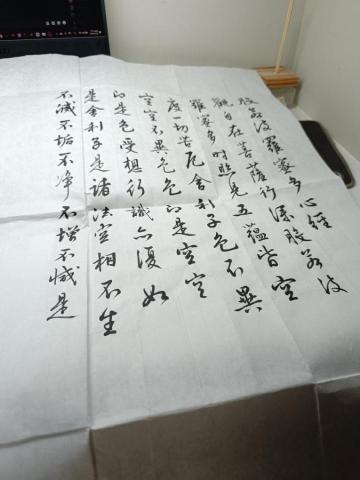 般若波羅蜜多心經
觀自在菩薩行深般若波
羅蜜多時照見五蘊皆空
度一切苦厄舍利子色不異
空空不異色色即是空空
即是色受想行識亦復如
是舍利子是諸法空相不生
不滅不垢不净不增不減是